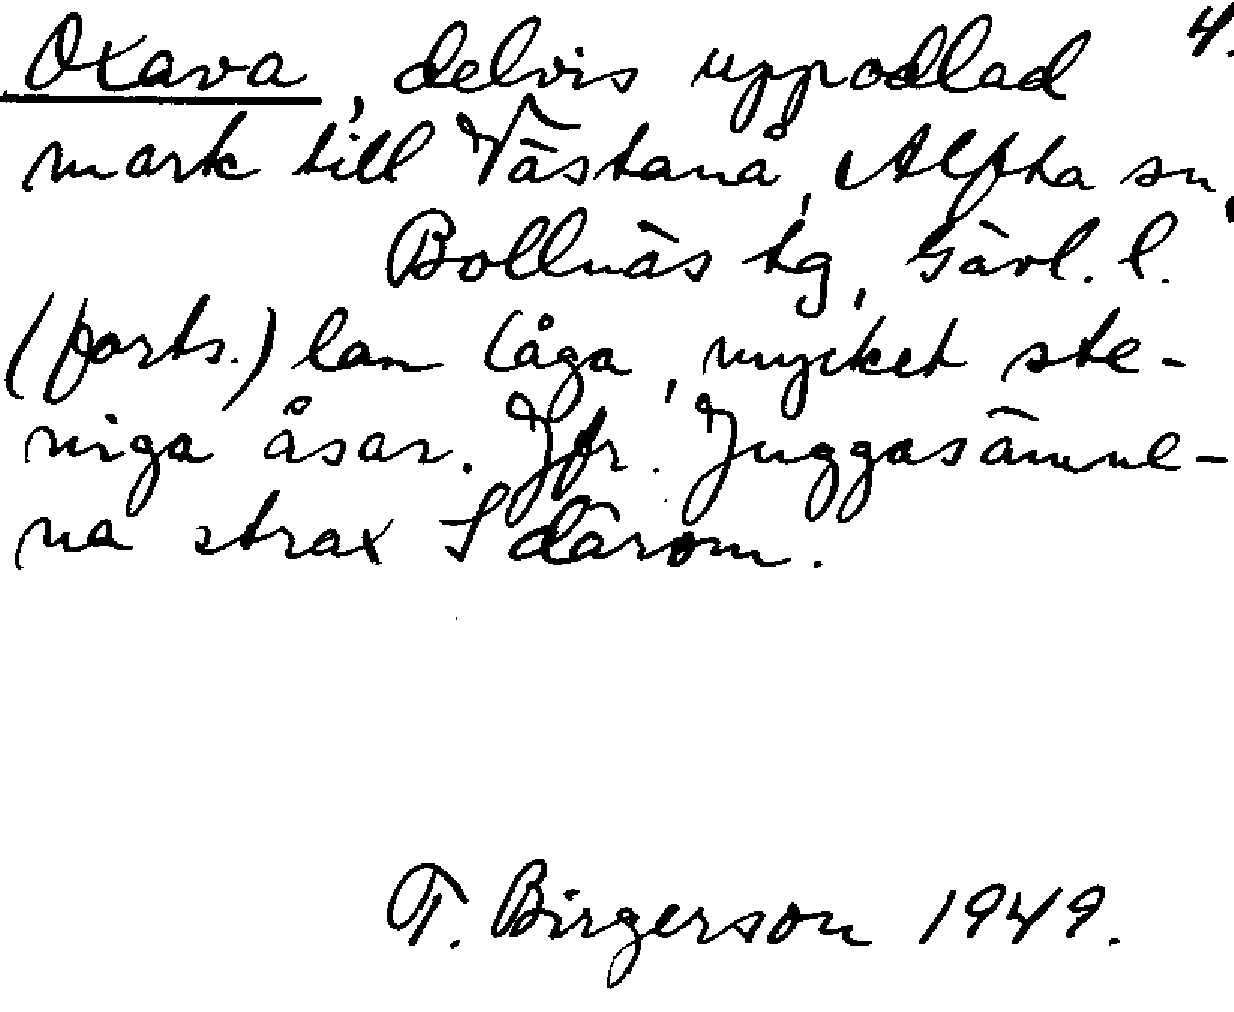 Oxava, delvis uppodlad 4.
mark till Västanå, Alfta sn,
Bollnäs tg, Gävl. l.
(forts.) lan låga, mycket ste-
niga åsar. Jfr. Juggasämne-
na strax S därom.
T. Birgerson 1949.